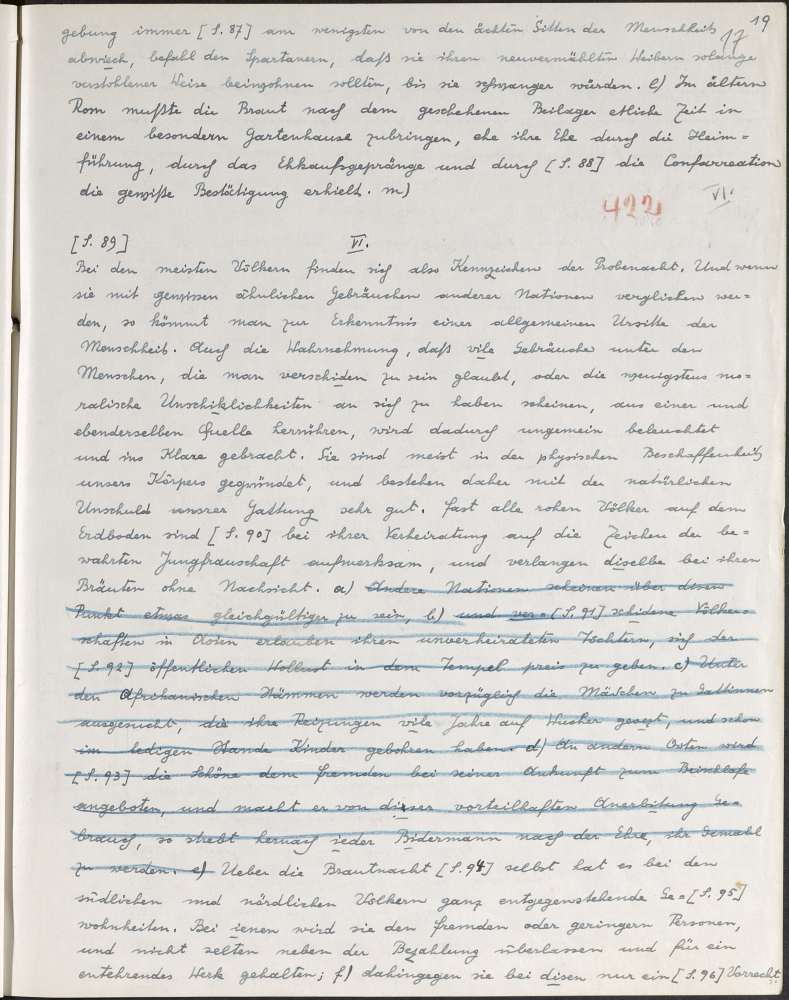 19
17
gebung immer [S. 87] am wenigsten von den ächten Sitten der Menschheit
abwiech, befall den Spartanern, daß sie ihren neuvermählten Weibern solange
verstohlener Weise beiwohnen sollten, bis sie schwanger würden. l) Im ältern
Rom mußte die Braut nach dem geschehenen Beilager etliche Zeit in
einem besondern Gartenhause zubringen, ehe ihre Ehe durch die Heim=
führung, durch das Ehkaufsgepränge und durch [S. 88] die Confarreation
die gewiße Bestätigung erhielt. m)
422
VI.
[S. 89] VI.
Bei den meisten Völkern finden sich also Kennzeichen der Probenacht. Und wenn
sie mit gewissen ähnlichen Gebräuchen anderer Nationen verglichen wer=
den, so kömmt man zur Erkenntnis einer allgemeinen Ursitte der
Menschheit. Auch die Wahrnehmung, daß vile Gebräuche unter den
Menschen, die man verschiden zu sein glaubt, oder die wenigstens mo=
ralische Unschiklichkeiten an sich zu haben scheinen, aus einer und
ebenderselben Quelle herrühren, wird dadurch ungemein beleuchtet
und ins Klare gebracht. Sie sind meist in der physischen Beschaffenheit
unsers Körpers gegründet, und bestehen daher mit der natürlichen
Unschuld unsrer Gattung sehr gut. Fast alle rohen Völker auf dem
Erdboden sind [S. 90] bei ihrer Verheiratung auf die Zeichen der be=
wahrten Jungfrauschaft aufmerksam, und verlangen diselbe bei ihren
Bräuten ohne Nachsicht. a) Andere Nationen scheinen über disen
Punkt etwas gleichgültiger zu sein, b) und ver= [S. 91] schidene Völker=
schaften in Asien erlauben ihren unverheirateten Töchtern, sich der
[S. 92] öffentlichen Wollust in dem Tempel preis zu geben. c) Unter
den Afrikanischen Stämmen werden vorzüglich die Mädchen zu Gattinnen
ausgesucht, die ihre Reizungen vile Jahre auf Wucher gesezt, und schon
im ledigen Stande Kinder gebohren haben. d) An andern Orten wird
[S. 93] die Schöne dem Fremden bei seiner Ankunft zum Beischlafe
angeboten, und macht er von diser vorteilhaften Anerbitung Ge=
brauch, so strebt hernach ieder Bidermann nach der Ehre, ihr Gemahl
zu werden. e) Ueber die Brautnacht [S. 94] selbst hat es bei den
südlichen und nördlichen Völkern ganz entgegenstehende Ge= [S. 95]
wohnheiten. Bei ienen wird sie den Fremden oder geringern Personen,
und nicht selten neben der Bezahlung überlassen und für ein
entehrendes Werk gehalten; f) dahingegen sie bei disen nur ein [S. 96] Vorrecht